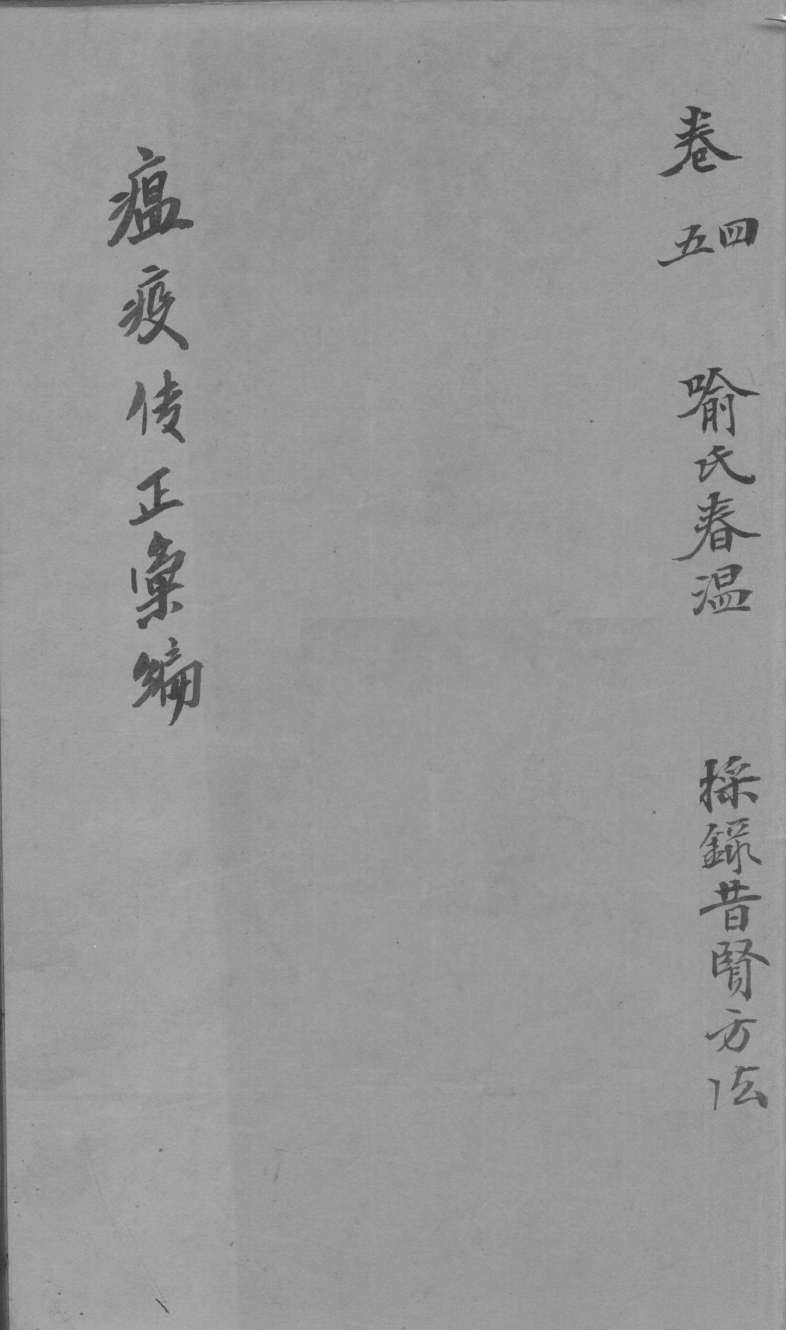 卷四五 喻氏春温 採録昔賢方法
瘟疫传正彙編